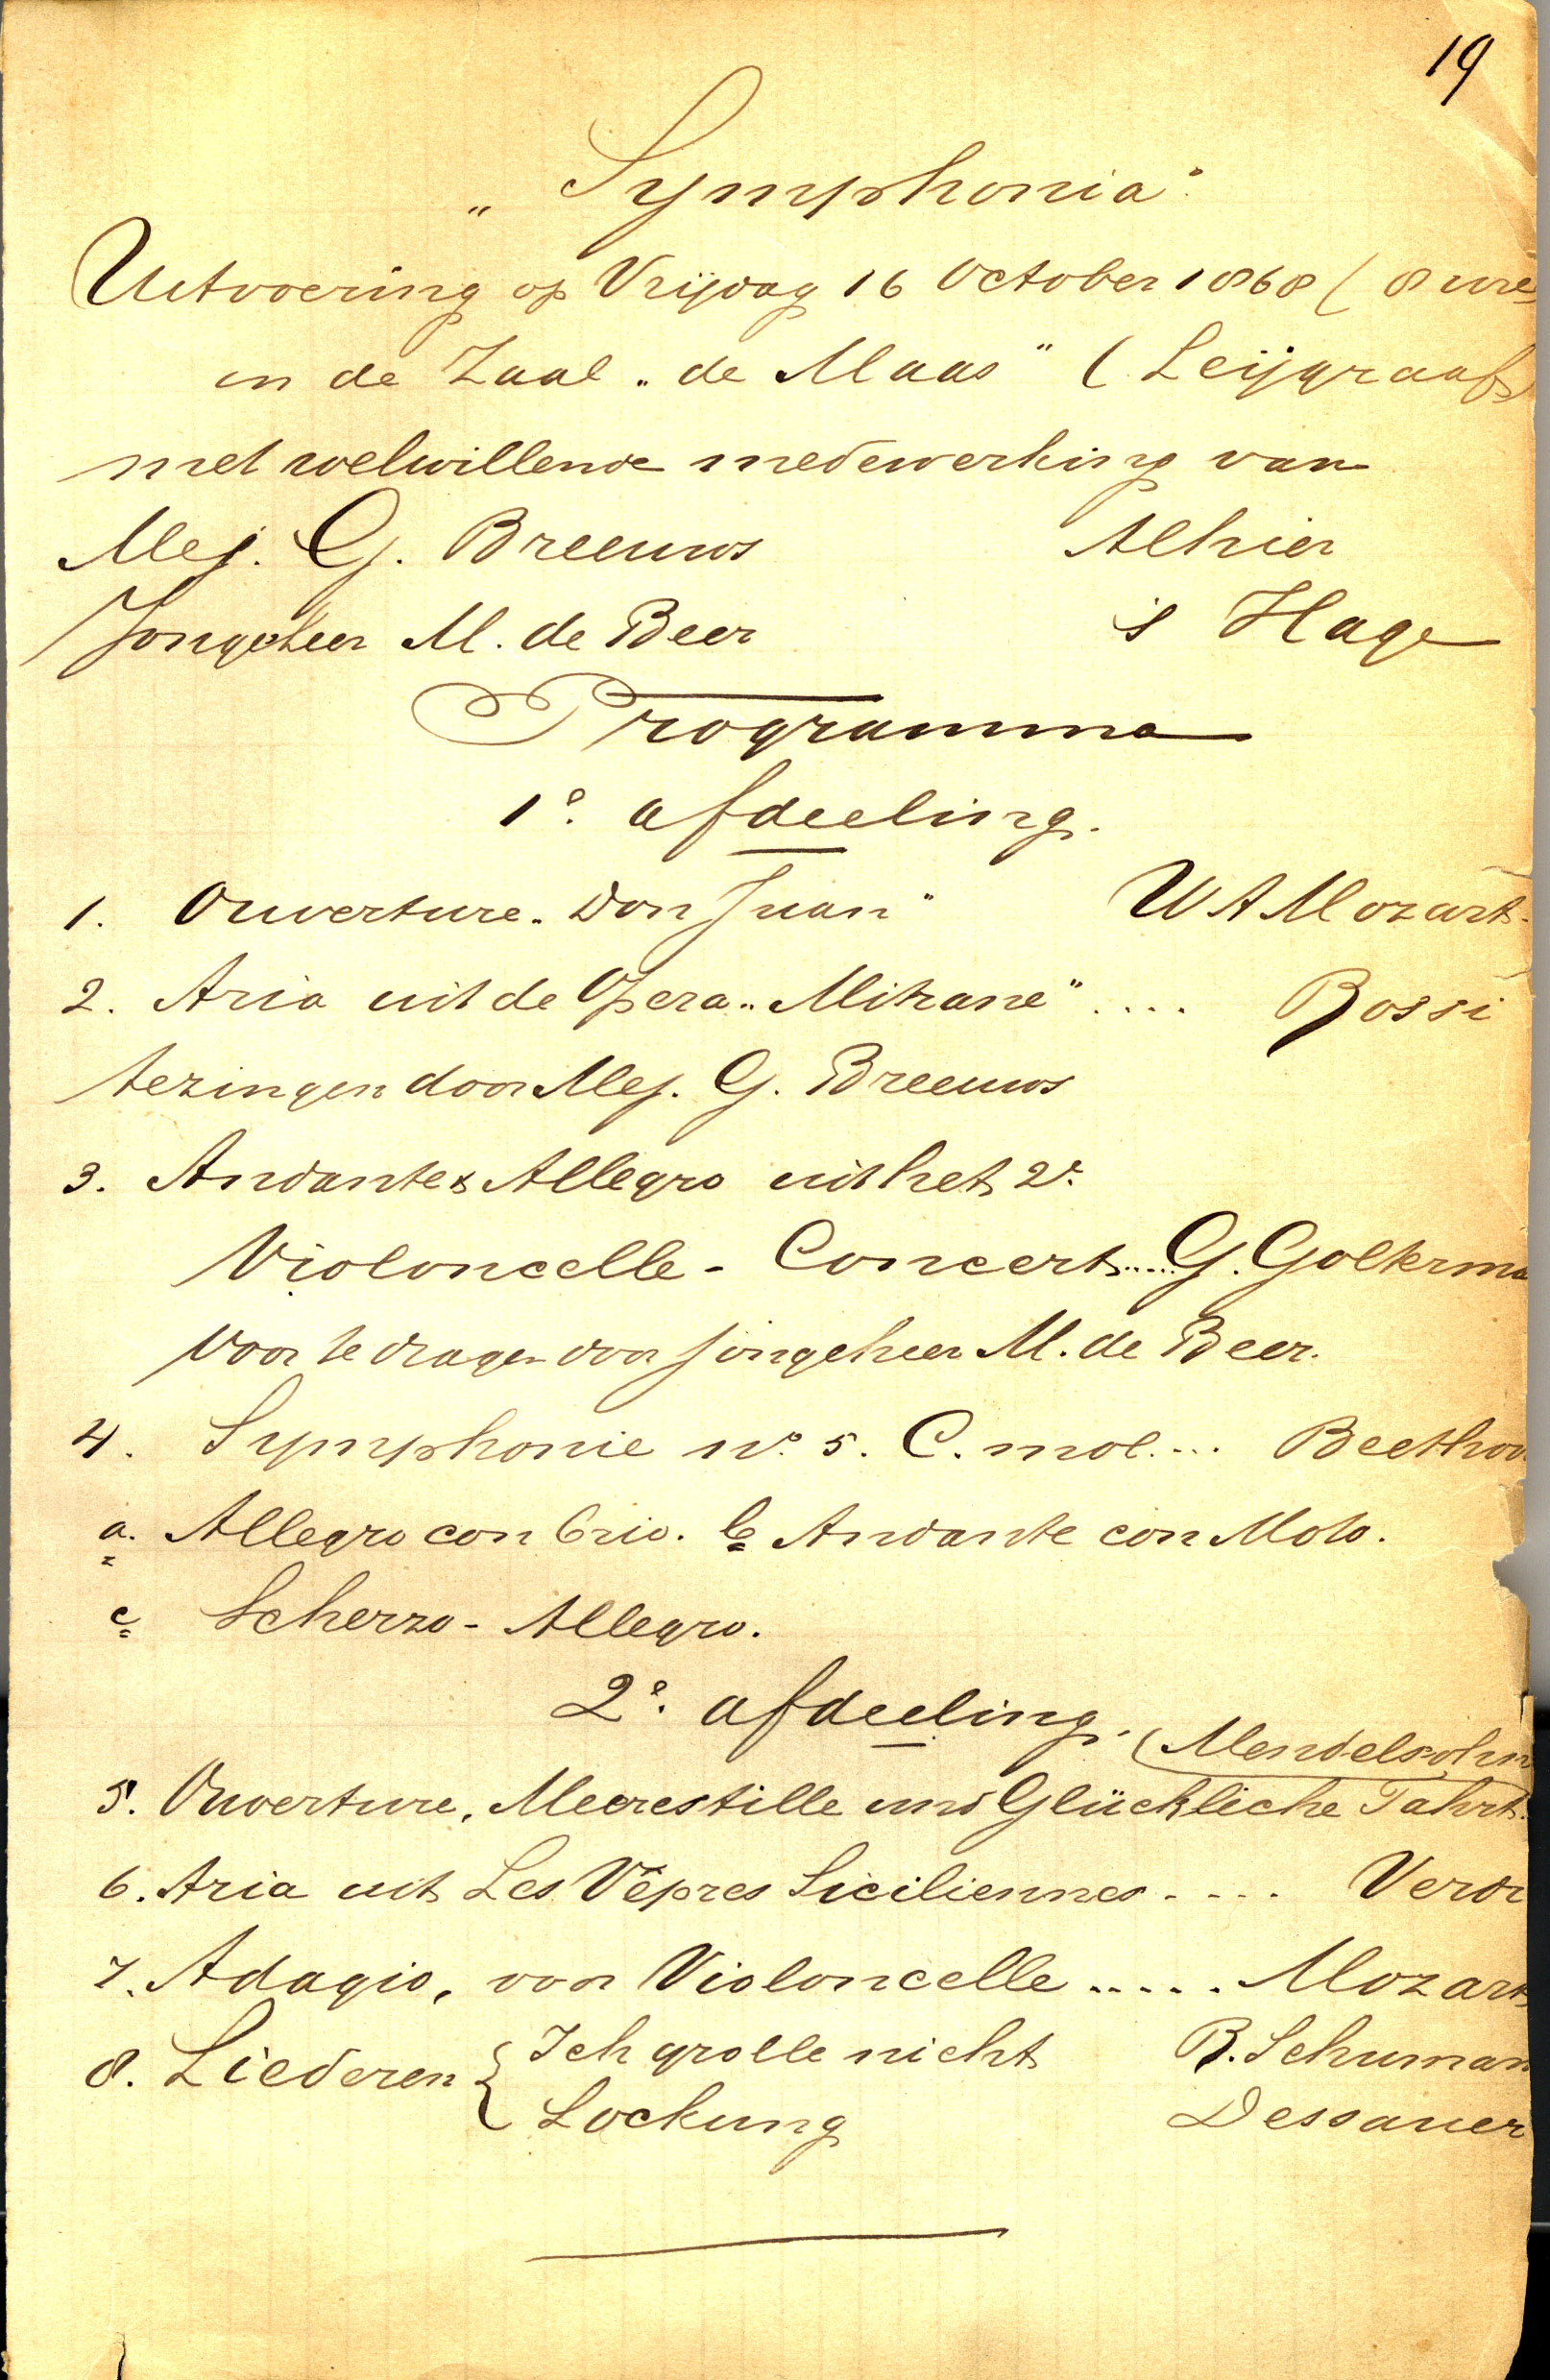 19
„Symphonia"
Uitvoering op Vrijdag 16 October 1868 ( 8 ure
in de Zaal „de Maas" ( Leijgraaf
met welwillende medewerking van
Mej. G. Breeuws Alhier
Jongeheer M. de Beer 's Hage
Programma
1e. afdeeling.
1. Ouverture „Don Juan" W A Mozart.
2. Aria uit de Opera „Mitrane" .... Rossi
te zingen door Mej. G. Breeuws
3. Andante & Allegro uit het 2e.
Violoncelle - Concert .... G. Golterma
voor te dragen door jongeheer M. de Beer.
4. Symphonie No. 5. C. mol. ... Beethov
a. Allegro con brio. b Andante con Moto.
c Scherzo - Allegro.
2e. afdeeling.
(Mendelsohn
5. Ouverture, Meerestille und Glückliche Fahrt.
6. Aria uit Les Vêpres Siciliennes .... Verdi
7. Adagio, voor Violoncelle ..... Mozart
8. Liederen { Ich grolle nicht R. Schuman
Lockung Dessauer